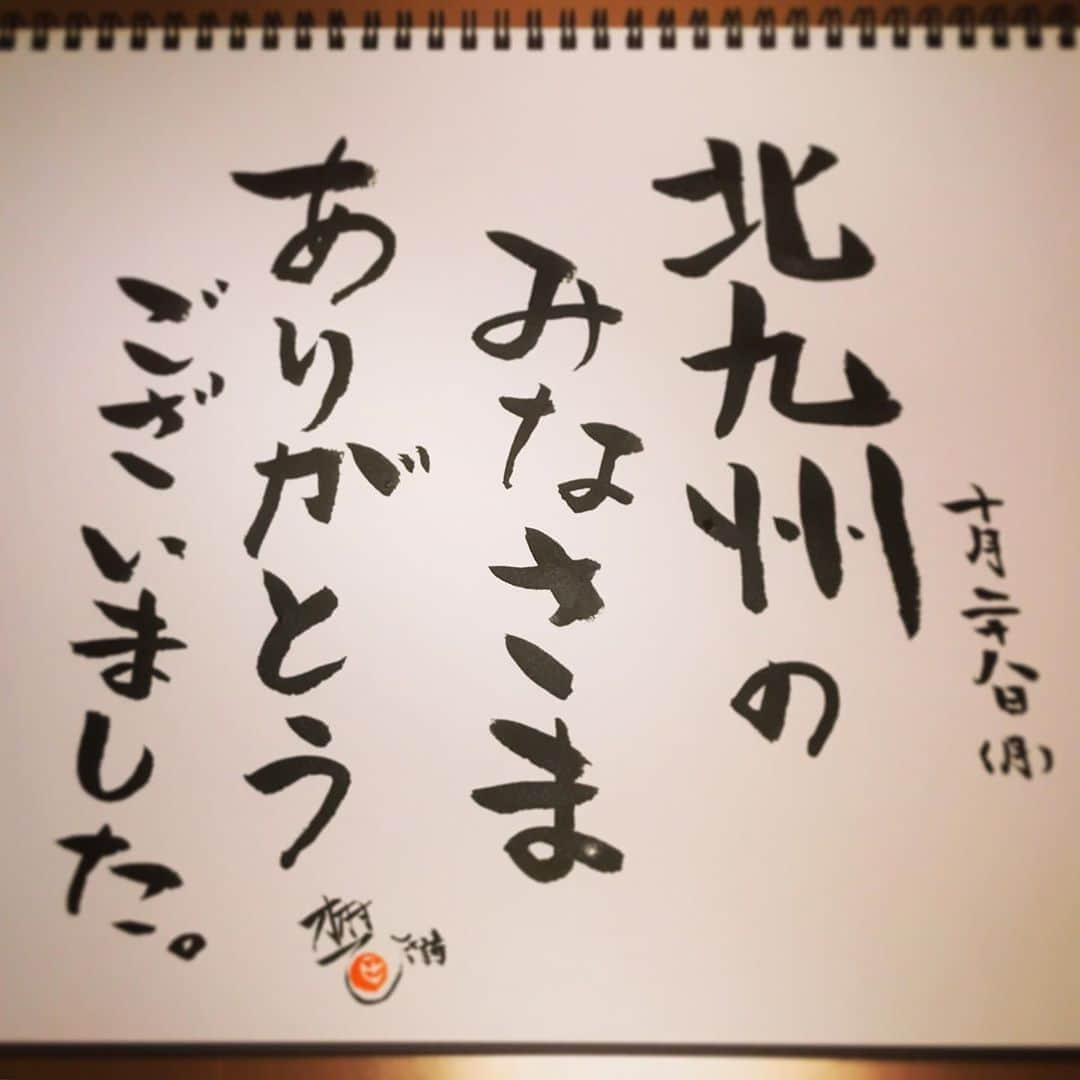 十月二十八日(月)
北九州の
みなさま
ありがとう
ございました。